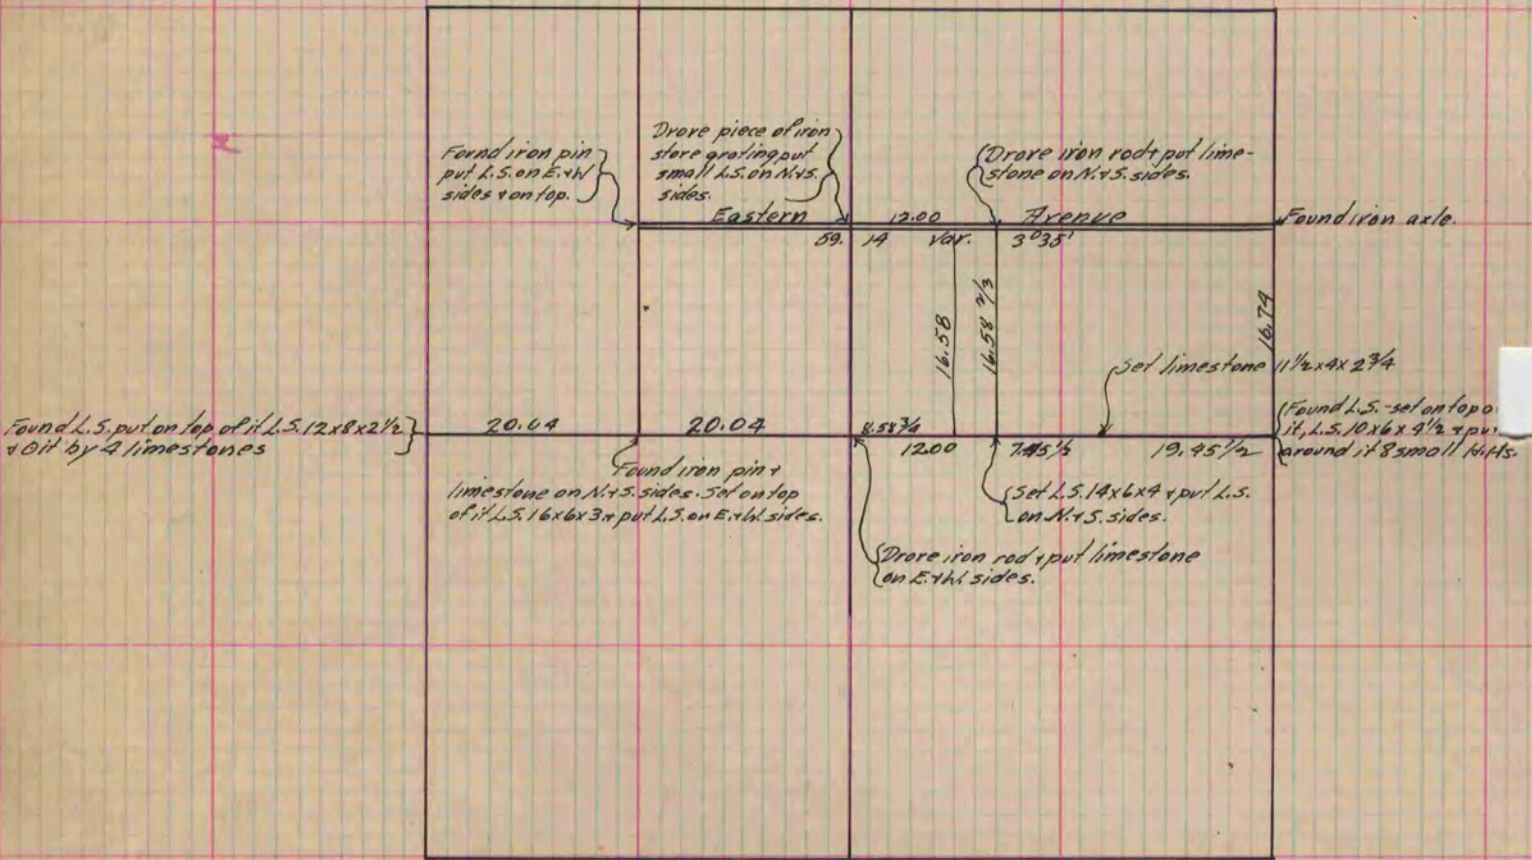 Found iron pin
put L.S. on E.+W
sides + on top.
Drove piece of iron
stove grating put
small L.S. on N.+S.
sides.
Drove iron rod + put lime-
stone on N.+S. sides.
Eastern 12.00 Avenue
Found iron axle.
59. 14 Var. 3°35'
16.58
16.58 2/3
16.74
Set limestone 11 1/2 x 4 x 2 3/4
Found L.S. put on top of it L.S. 12x8x2 1/2
+ Oit by 4 limestones
20.04 20.04 8.58 3/4
12.00 7.45 1/2 19.45 1/2
Found L.S. - set on top o
it, L.S. 10x6x4 1/2 + pu
around it 8 small H.Hs.
Found iron pin +
limestone on N.+S. sides. Set on top
of it L.S. 16x6x3 + put L.S. on E.+W. sides.
Set L.S. 14x6x4 + put L.S.
on N.+S. sides.
Drove iron rod + put limestone
on E.+W. sides.